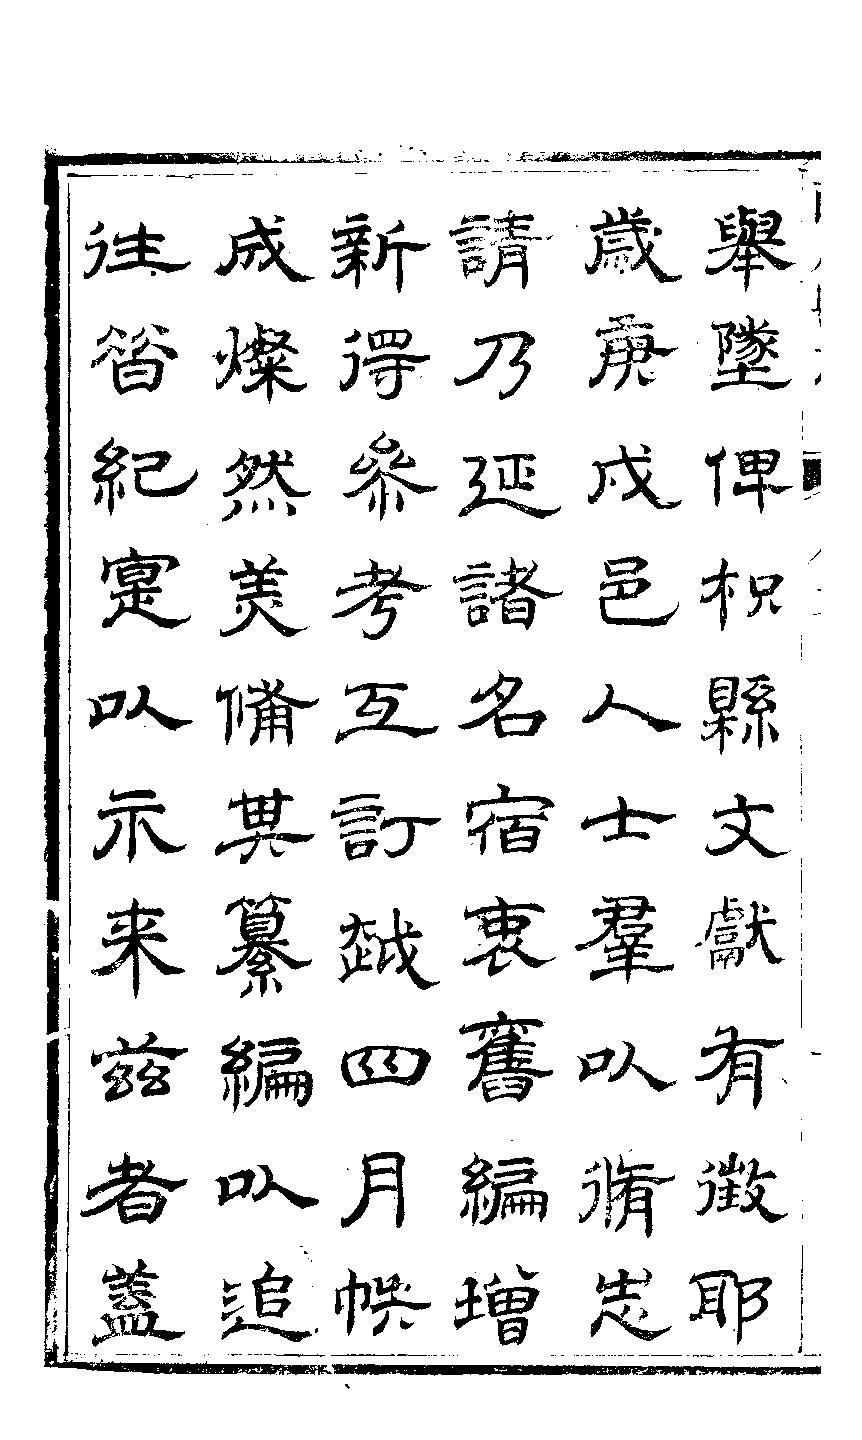 舉墜俾枳縣文獻有徵耶
歲庚戌邑人士羣以脩志
請乃延諸名宿衷舊編增
新得參考互訂越四月帙
成燦然美備其纂編以追
往昔紀寔以示来兹者蓋